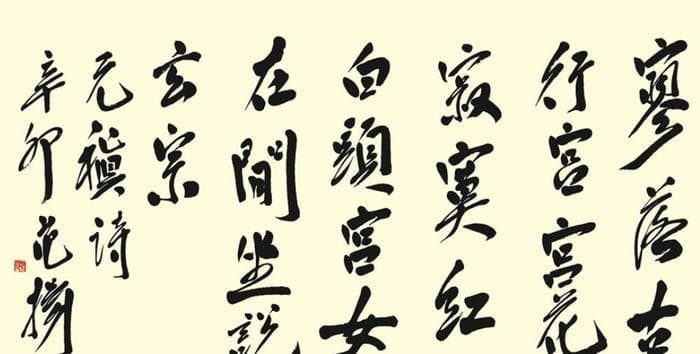 寥落古
行宫宫花
寂寞紅
白頭宫女
在間坐說
玄宗
元稹诗
辛卯范